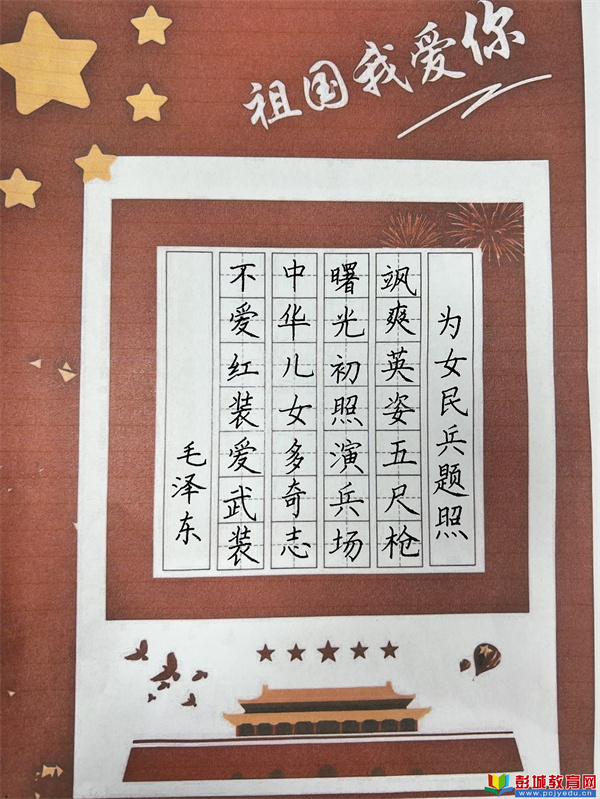 祖国我爱你
为女民兵题照
飒爽英姿五尺枪
曙光初照演兵场
中华儿女多奇志
不爱红装爱武装
毛泽东
彭城教育网
www.pcjyedu.cn